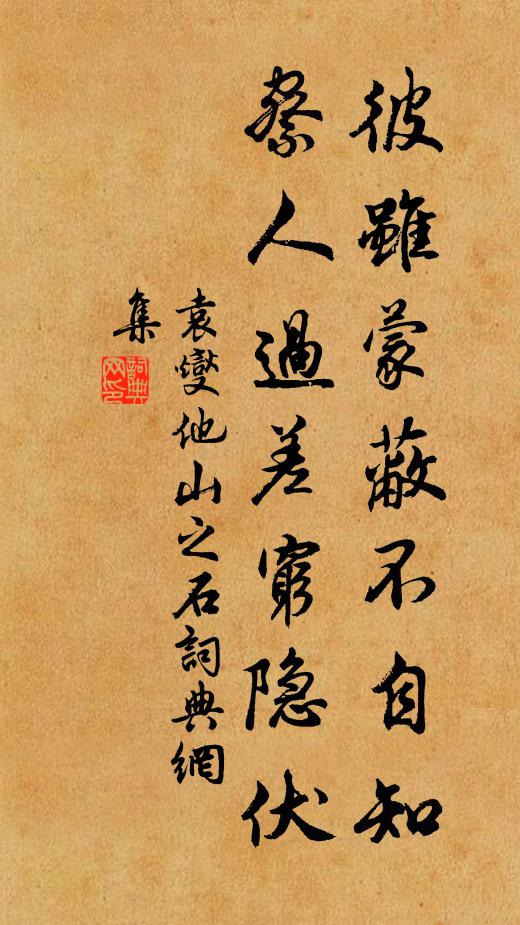 彼雖蒙蔽不自知
察人過差窮隱伏
袁燮他山之石詞典網
集
詞典網印